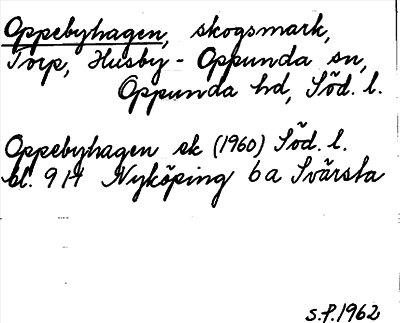 Oppebyhagen, skogsmark,
Torp, Husby-Oppunda sn,
Oppunda hd, Söd. l.
Oppebyhagen ek (1960) Söd. l.
bl. 9 H Nyköping 6a Svärsta
S.P. 1962